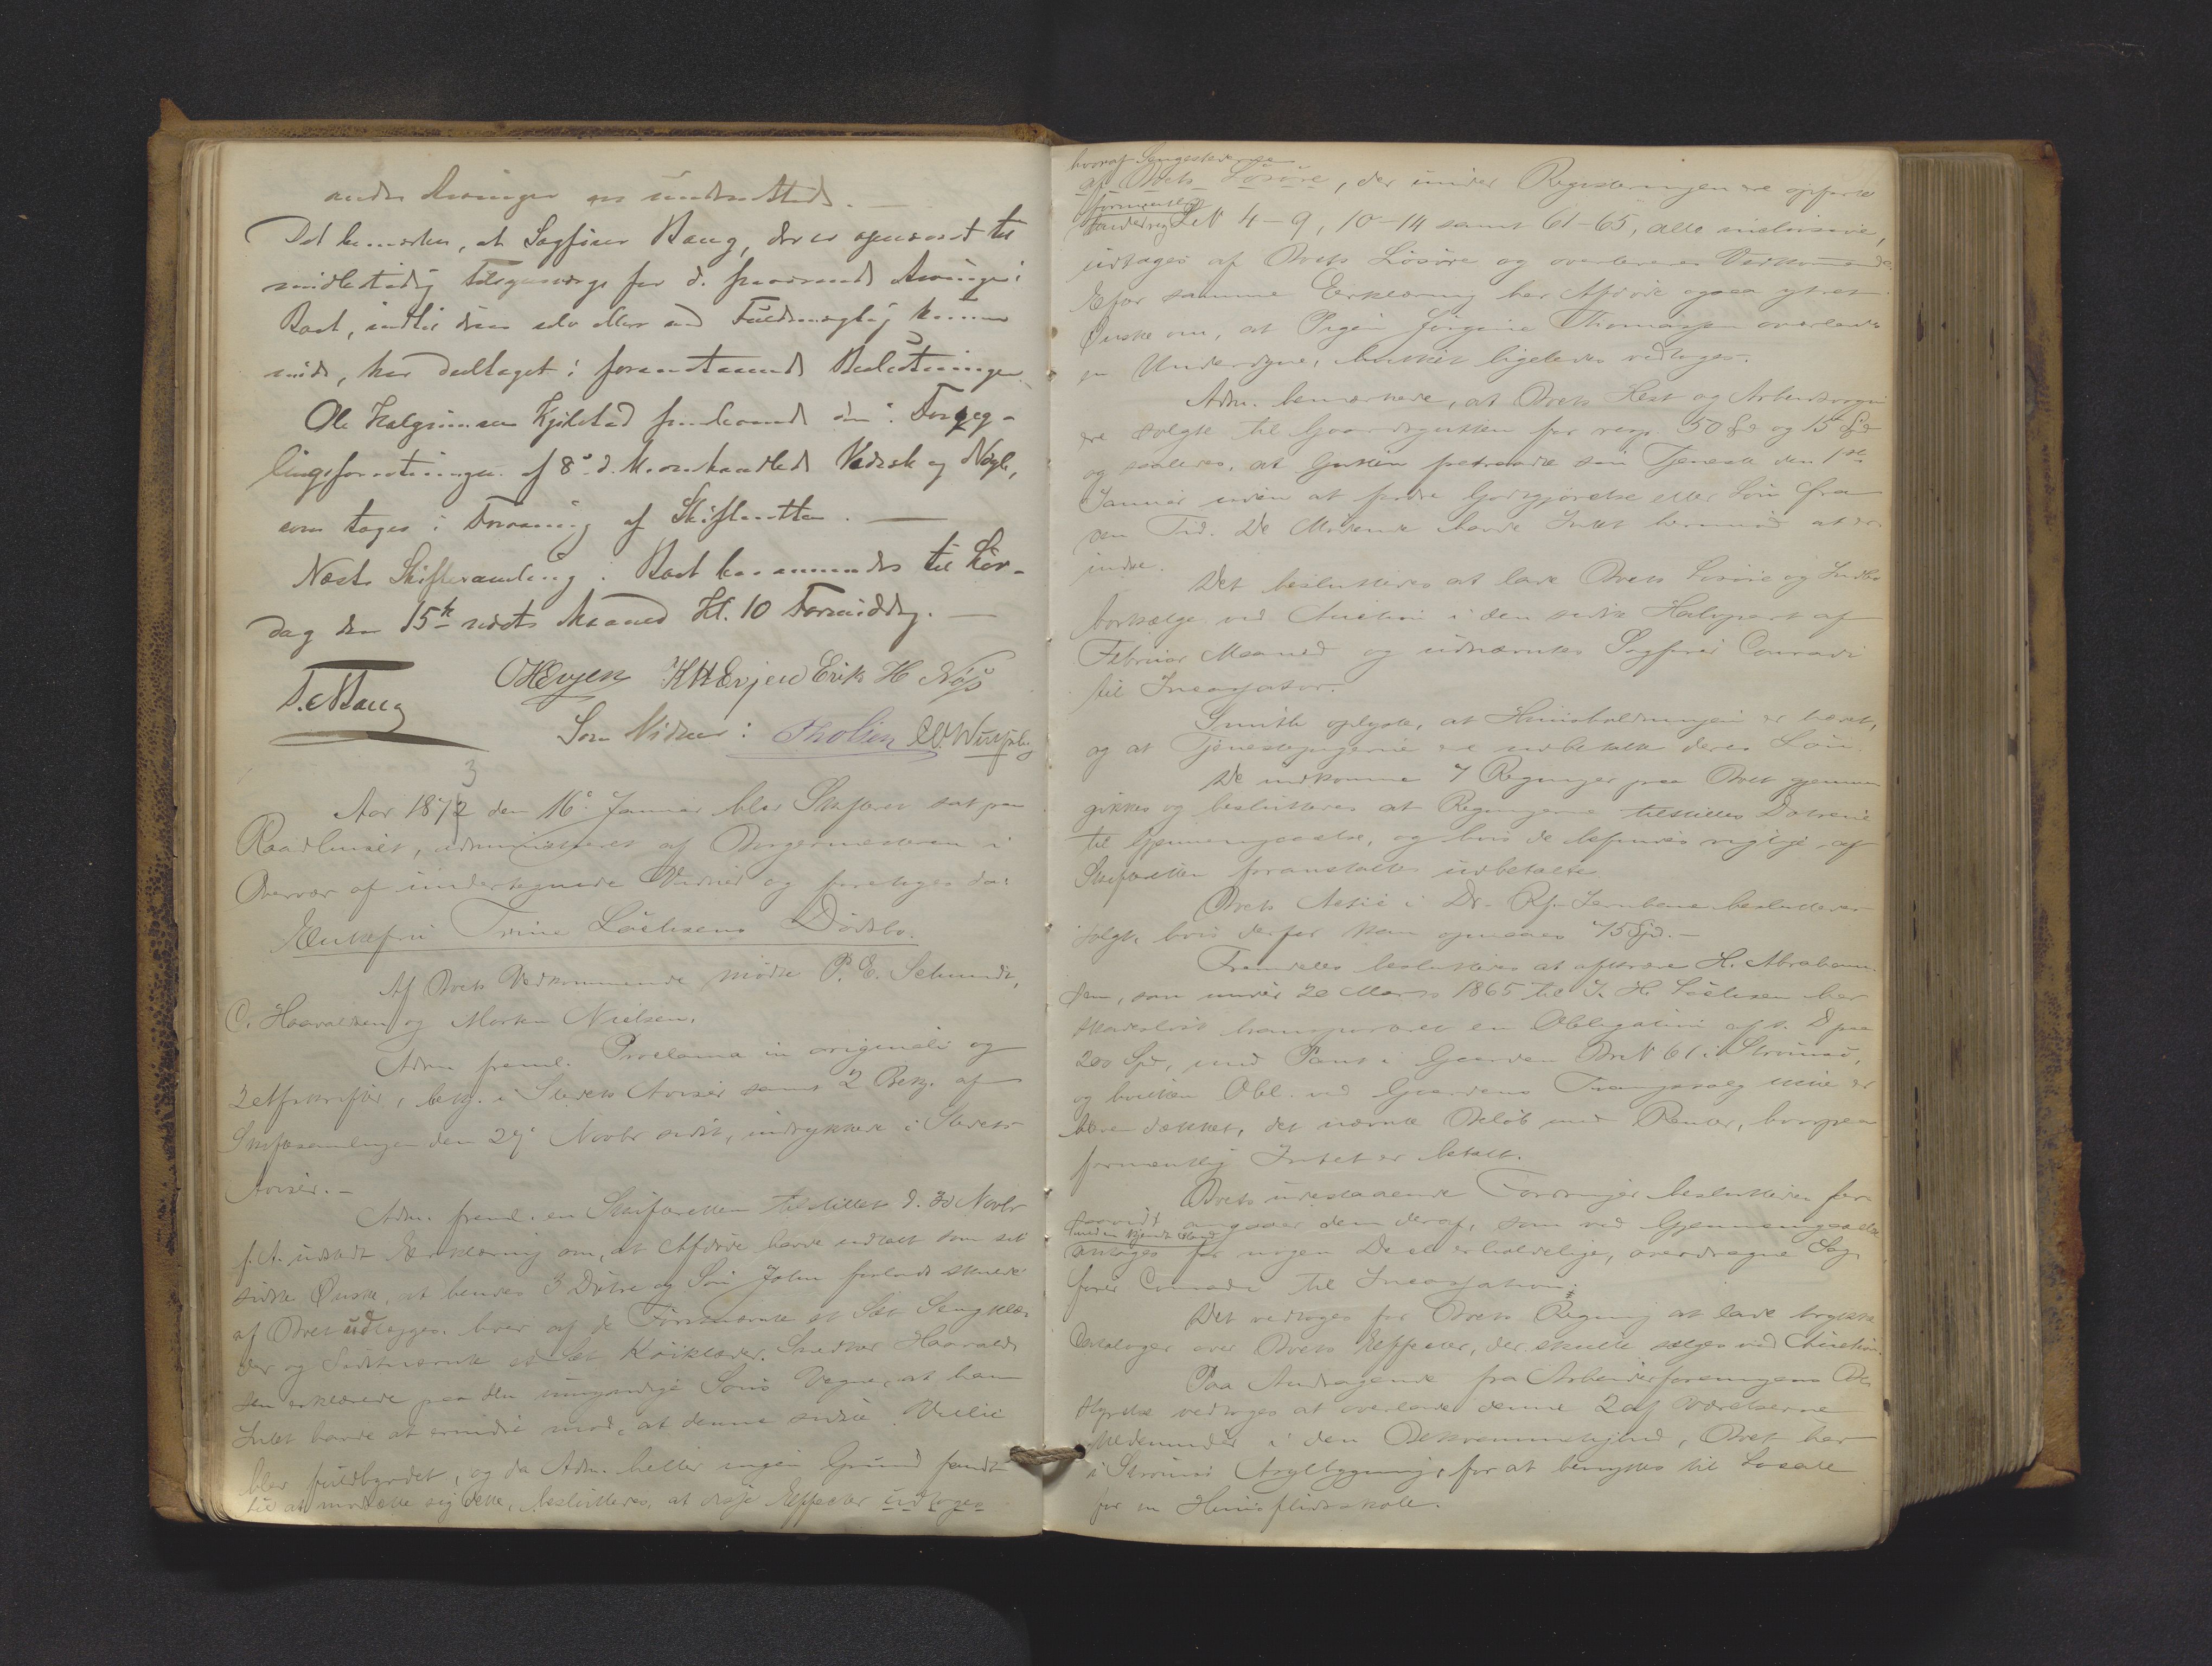 andre Arvinger er underrettede. —
Det bemærkes, at Sagfører Bang, der er opnævnt til
midlertidig Tilsynsværge for d. fraværende Arvinger i
Boet, indtil disse selv eller ved Fuldmægtig komme
møde, har deeltaget i foranstaaende Beslutninger.
Ole Halgrimsen Kjilstad fremkom med den i Forseg-
lingsforretningen af 8de d. M. omhandlede Vadsæk og Nøgle,
som toges i Forvaring af Skifteretten. —
Næste Skiftesamling i Boet berammedes til Lør-
dag den 15de næste Maaned Kl. 10 Formiddag. —
D. C. Bang
OHEvjen KHEvjen Erik H
Som Vidner:
3
Aar 1872 den 16de Januar blev Skifteret sat paa
Raadhuset, administreret af Borgermesteren i
Overvær af undertegnede Vidner og foretoges da:
Enkefru Trine Søelsens Dødsbo.
Af Boets Vedkommende mødte P. E. Schmidt,
C. Haavaldsen og Morten Nielsen.
Adm. freml. Proclama in originali og
2 Afskrifter, bekj. i Stedets Aviser samt 2 Bekj. af
Skiftesamlingen den 29de Novbr sidst, indrykkede i Stedets
Aviser. —
Adm. freml. en Skifteretten tilstillet d. 30 Novbr
f. A. udstedt Erklæring om, at Afdøde havde udtalt som sit
sidste Ønske, at hendes 3 Døtre og Søn John forlods skulde
af Boet udlægges hver af de Førstnævnte et Sæt Sengklæ-
der og Sidstnævnte et Sæt Køiklæder. Haavald-
sen erklærede paa den umyndige Søns Vegne, at han
Intet havde at erindre mod, at denne sidste Villie
blev fuldbyrdet, og da Adm. heller ingen Grund fandt
til at modsætte sig dette, besluttedes, at disse Effecter udtoges
hvoraf Sengestederne
af Boets Løsøre, der under Registeringen ere opførte
formentlig
Litr N 4-9, 10-14 samt 61-65, alle inclusive,
udtages af Boets Løsøre og overleveres Vedkommende.
Efter samme Erklæring har Afdøde ogsaa ytret
Ønske om, at Pigen Jørgine Thomassen overlades
en Underdyne, hvilket ligeledes vedtoges.
Adm. bemærkede, at Boets Hest og Arbeidsvogn
ere solgte til Gaardsgutten for resp. 50 Spd og 15 Spd
og saaledes, at Gutten fratraadte sin Tjeneste den 1ste
Januar uden at fordre Godtgjørelse eller Løn fra
den Tid. De Mødende havde Intet herimod at er-
indre.
Det besluttedes at lade Boets Løsøre og Indbo
bortsælge ved Auction i den sidste Halvpart af
Februar Maaned og udnævntes Sagfører Conradi
til Incassator.
Smith oplyste, at Huusholdningen er hævet,
og at Tjenestepigerne ere udbetalte deres Løn.
De indkomne 7 Regninger paa Boet gjennem-
gikkes og besluttedes at Regningerne tilstilles Døtrene
til Gjennemgaaelse, og hvis de befindes rigtige, af
Skifteretten foranstaltes udbetalte.
Boets Actie i Dr. Rf. Jernbane besluttedes
solgt, hvis derfor kan opnaaes 75 Spd. —
Fremdeles besluttedes at afkræve H. Abraham-
sen, som under 20 Marts 1865 til J. H. Søelsen har
skadesløst transporteret en Obligation af s. D. paa
200 Spd, med Pant i Gaarden Br. N 61 i Strømsø,
og hvilken Obl. ved Gaardens Tvangssalg ikke er
bleven dækket, det nævnte Beløb med Renter, hvorpaa
formentlig Intet er betalt.
Boets udestaaende Fordringer besluttedes for-
saavidt angaaer dem deraf, som ved Gjennemgaaelse
antages for nogen Deel erholdelige, overdragne Sag-
fører Conradi til Incassation.
Det vedtoges for Boets Regning at lade trykke
Cataloger over Boets Effecter, der skulle sælges ved Auction.
Paa Andragende fra Arbeiderforeningens Be-
styrelse vedtoges at overlade denne 2 af Værelserne
nedenunder i den Bekvemmelighed, Boet har
i Strømsø Asylbygning, for at benyttes til Locale
for en Huusflidsskole.